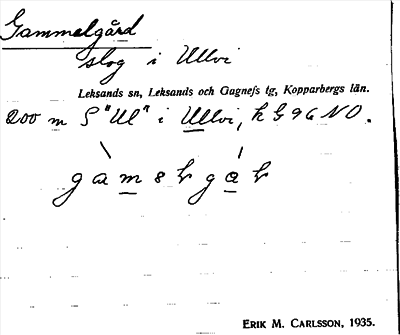 Gammelgård
slog i Ullvi
Leksands sn, Leksands och Gagnefs tg, Kopparbergs län.
200 m S "Ul" i Ullvi, k G 96 NO.
ERIK M. CARLSSON, 1935.